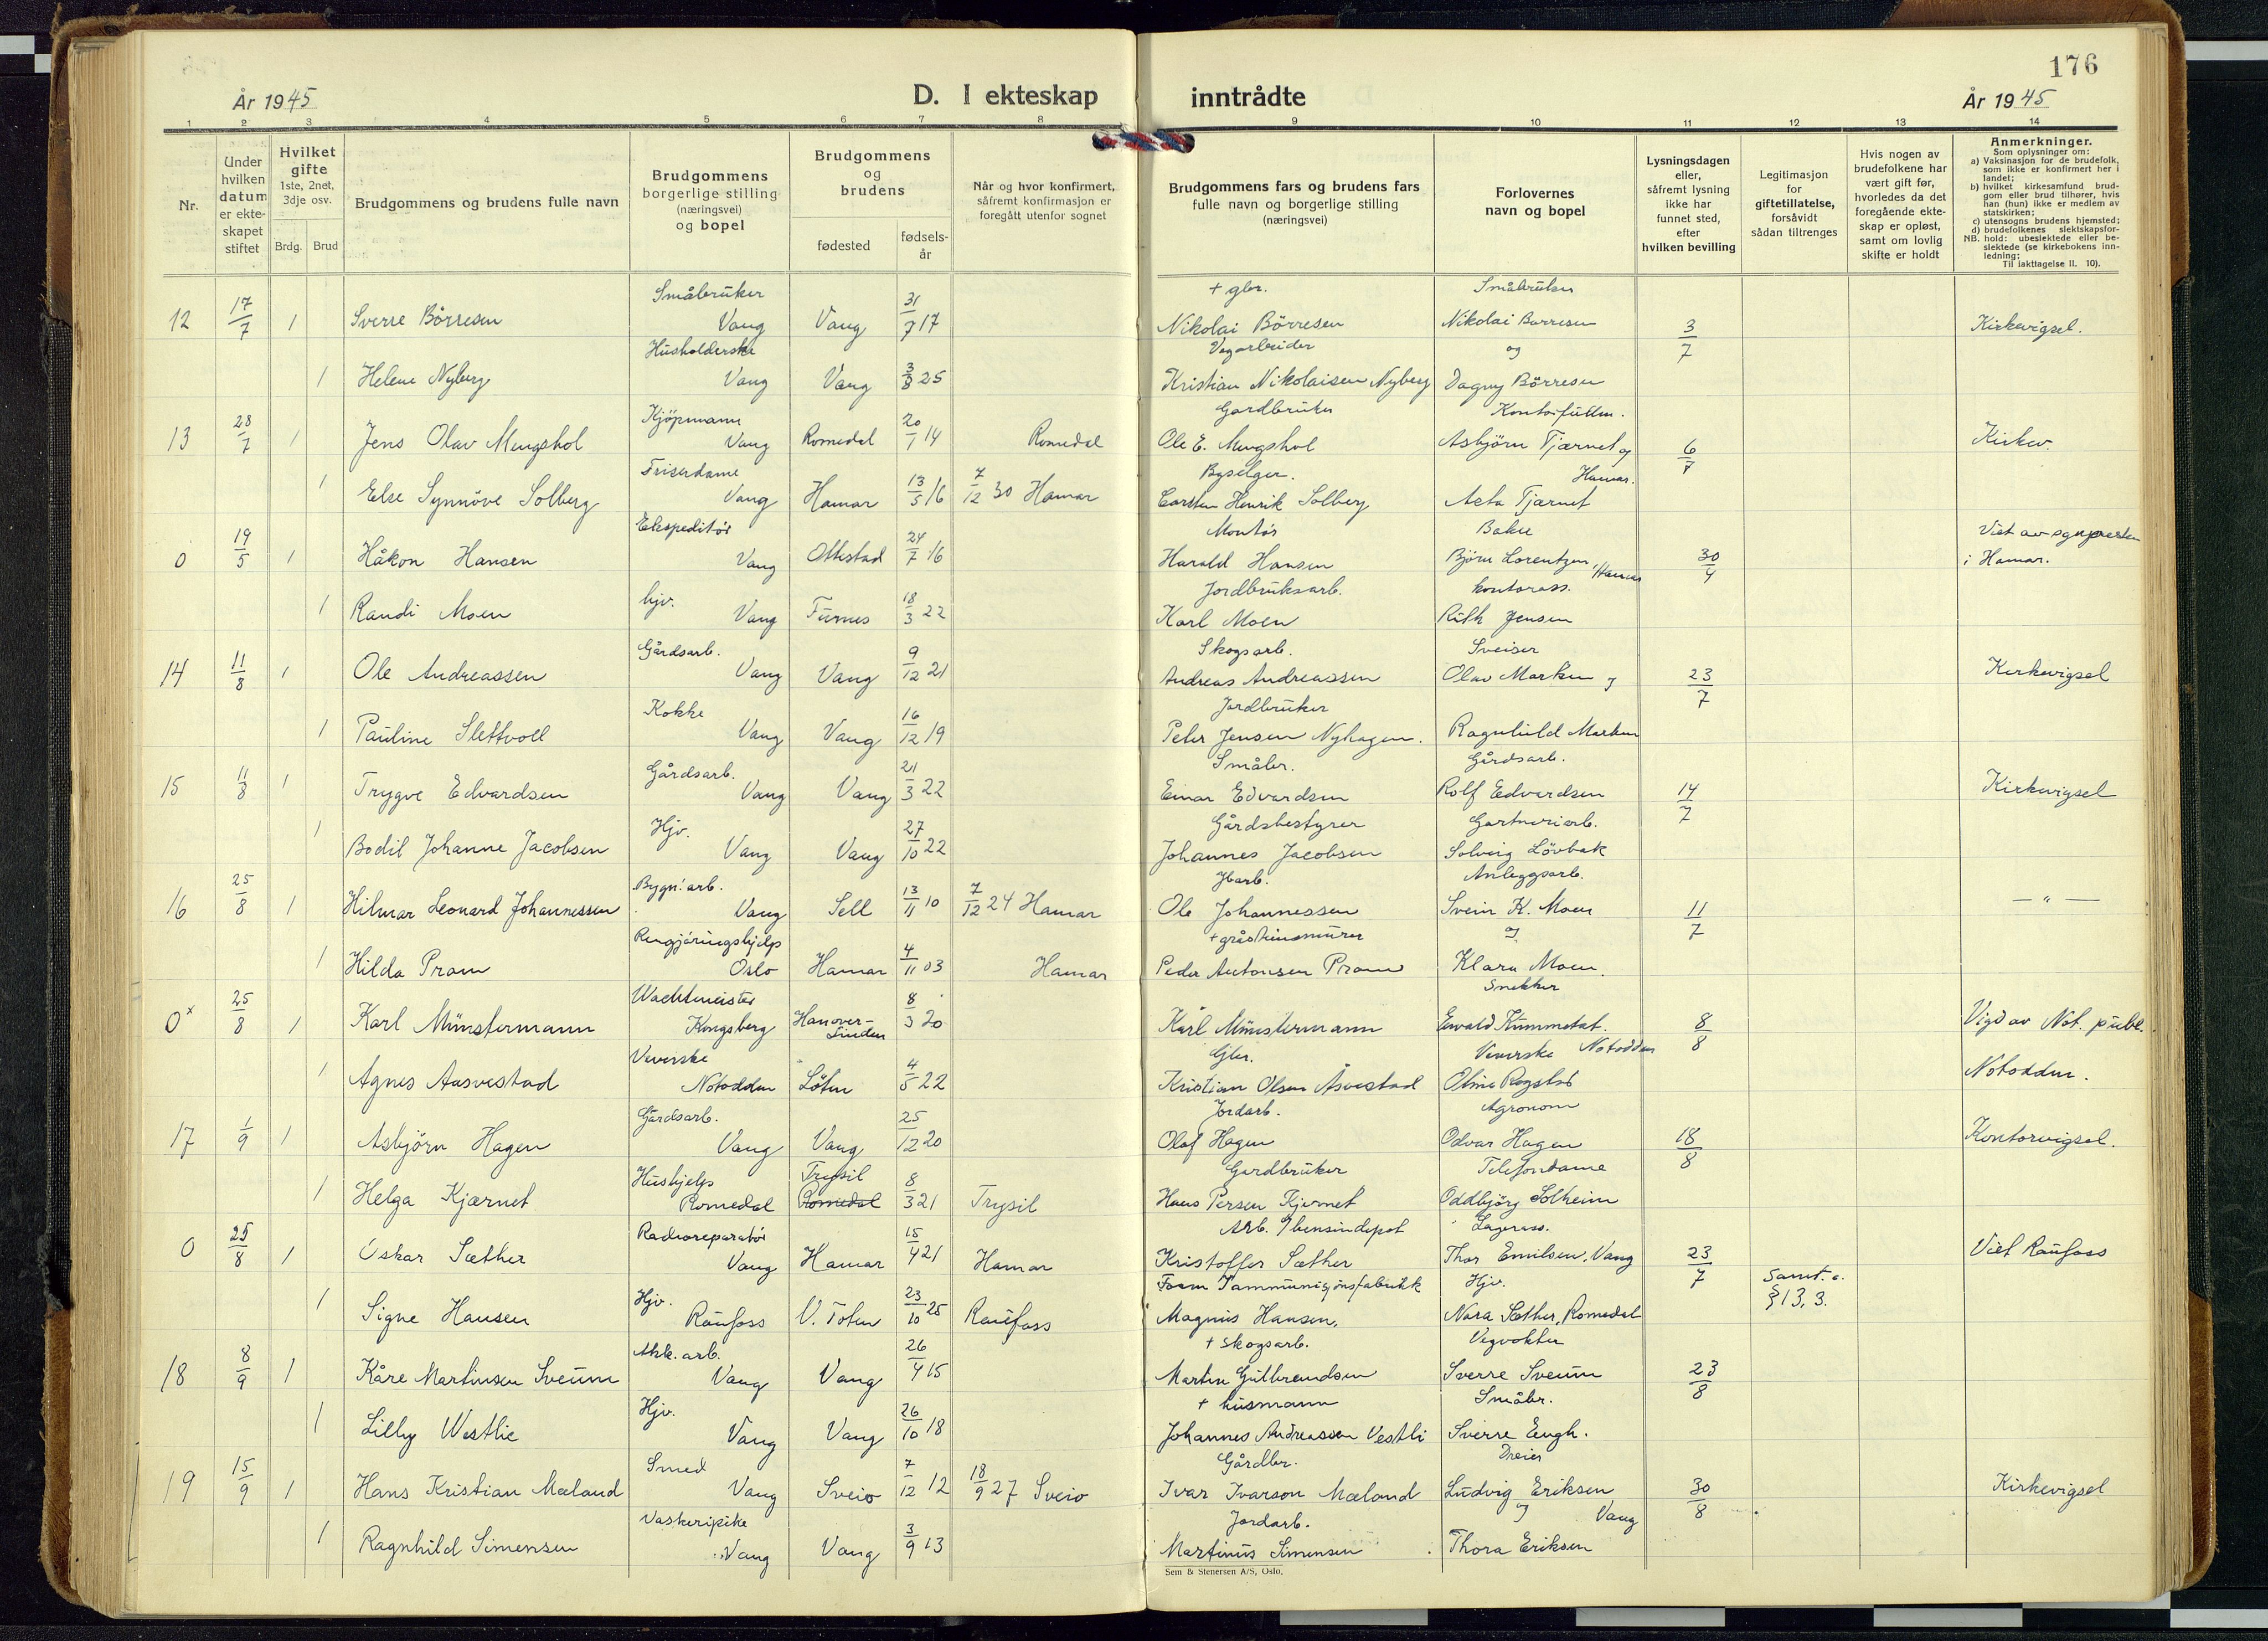 176
År 1945
D. I ekteskap
inntrådte
År 1945
1 2 3 4 5 6 7 8 9 10 11 12 13 14
Nr.
Under hvilken datum er ekteskapet stiftet
Hvilket gifte 1ste, 2net, 3dje osv.
Brdg.
Brud
Brudgommens og brudens fulle navn
Brudgommens borgerlige stilling (næringsvei) og bopel
Brudgommens og brudens
fødested
fødsels-år
Når og hvor konfirmert, såfremt konfirmasjon er foregått utenfor sognet
Brudgommens fars og brudens fars fulle navn og borgerlige stilling (næringsvei)
Forlovernes navn og bopel
Lysningsdagen eller, såfremt lysning ikke har funnet sted, efter hvilken bevilling
Legitimasjon for giftetillatelse, forsåvidt sådan tiltrenges
Hvis nogen av brudefolkene har vært gift før, hvorledes da det foregående ekteskap er opløst, samt om lovlig skifte er holdt
Anmerkninger.
Som oplysninger om:
a) Vaksinasjon for de brudefolk, som ikke er konfirmert her i landet;
b) hvilket kirkesamfund brudgom eller brud tilhører, hvis han (hun) ikke er medlem av statskirken;
c) utensogns brudens hjemsted;
d) brudefolkenes slektskapsforhold: ubeslektede eller beslektede (se kirkebokens innledning;
NB. Til iakttagelse II. 10).
12 17/7 1 Sverre Börresen Småbruker Vang Vang 31/7 17 + gbr. Nikolai Börresen Småbruker Nikolai Börresen og 3/7 Kirkevigsel.
1 Helene Nyberg Husholderske Vang Vang 3/8 25 Vegarbeider Kristian Nikolaisen Nyberg Dagny Börresen
13 28/7 1 Jens Olav Mengshol Kjöpmann Vang Romedal 20/1 14 Romedal Gardbruker Ole E. Mengshol Asbjörn Tjærnet og 6/7 Kirkev.
1 Else Synnöve Solberg Friserdame Vang Hamar 13/5 16 7/12 30 Hamar Byselger. Carsten Henrik Solberg Hamar. Tjærnet
0 19/5 1 Håkon Hansen Ekspeditör Vang Ottestad 24/7 16 Montör Harald Hansen Baker Björn Lorentzen, Hamar 30/4 Viet av sognepresten i Hamar.
1 Randi Moen hjv. Vang Furnes 18/3 22 Jordbruksarb. Karl Moen kontorass. Ruth Jensen
14 11/8 1 Ole Andreassen Gårdsarb. Vang Vang 9/12 21 Skogsarb. Andreas Andreassen Sveiser Olav Marken og 23/7 Kirkevigsel
1 Pauline Slettvoll Kokke Vang Vang 16/12 19 Jordbruker Peder Jensen Nyhagen. Ragnhild Marken
15 11/8 1 Trygve Edvardsen Gårdsarb. Vang Vang 21/3 22 Småbr. Einar Edvardsen Gårdsarb. Rolf Edvardsen 14/7 Kirkevigsel
1 Bodil Johanne Jacobsen Hjv. Vang Vang 27/10 22 Gårdsbestyrer Johannes Jacobsen Gartneriarb. Solveig Lövbak
16 25/8 1 Hilmar Leonard Johannessen Bygn. arb. Vang Sell 13/11 10 7/12 24 Hamar Ole Johannessen Anleggsarb. Svein K. Moen og 11/7 — " —
1 Hilda Prom Rengjöringshjelp Oslo Hamar 4/11 03 Hamar + gråsteinsmurer Peder Antonsen Prom Klara Moen.
0x 25/8 1 Karl Münstermann Wachtmeister Kongsberg Hanover-Linden 8/3 20 Karl Münstermann Snekker Ewald Kummetat. 8/8 Vigd av Not. publ.
1 Agnes Aasvestad Veverske Notodden Löten 4/5 22 Gbr. Kristian Olsen Åsvestad Veverske Notodden Oline Rogstad Notodden.
17 1/9 1 Asbjörn Hagen Gårdsarb. Vang Vang 25/12 20 Jordarb. Olaf Hagen Agronom Odvar Hagen 18/8 Kontorvigsel.
1 Helga Kjærnet Hushjelp Romedal Trysil Romedal 8/3 21 Trysil Gardbruker Hans Persen Kjernet Telefondame Oddbjörg Solheim
0 25/8 1 Oskar Sæther Radioreparatör Vang Hamar 15/4 21 Hamar Arb. v/bensindepot Kristoffer Sæther Lagerass. Thor Emilsen, Vang 23/7 Viet Raufoss
1 Signe Hansen Hjv. Raufoss V. Toten 23/10 25 Raufoss Form. i ammunisjonsfabrikk Magnus Hansen, Hjv. Nora Sæther, Romedal Samt. e. § 13, 3.
18 8/9 1 Kåre Martinsen Sveum Akk. arb. Vang Vang 26/4 15 + skogsarb. Martin Gulbrandsen Vegvokter Sverre Sveum 23/8
1 Lilly Westlie Hjv. Vang Vang 26/10 18 + husmann Johannes Andreassen Vestli Småbr. Sverre Engh.
19 15/9 1 Hans Kristian Mæland Smed Vang Sveio 7/12 12 18/9 27 Sveio Gårdbr. Ivar Ivarson Mæland Dreier Ludvig Eriksen og Vang 30/8 Kirkevigsel
1 Ragnhild Simensen Vaskeripike Vang Vang 3/9 13 Jordarb. Martinus Simensen Thora Eriksen
Sem & Stenersen A/S, Oslo.